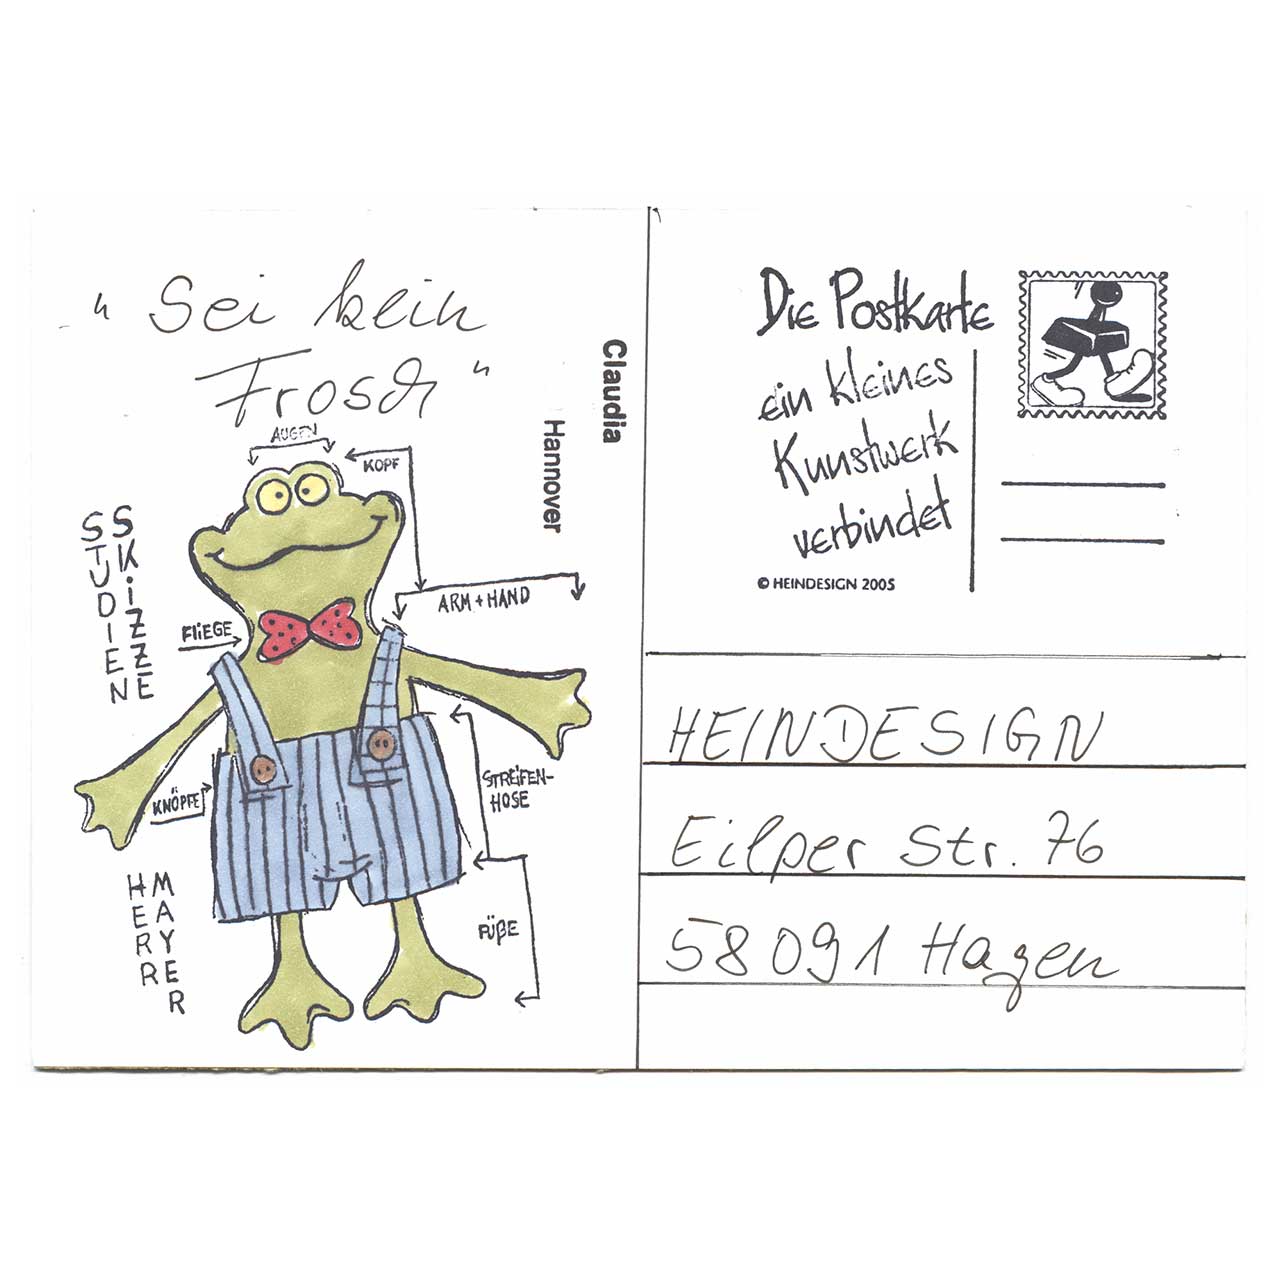 "Sei kein
Frosch"
Claudia
Hannover
AUGEN
KOPF
ARM + HAND
FLIEGE
STUDIEN
SKIZZE
KNÖPFE
STREIFEN-
HOSE
FÜßE
HERR
MAYER
Die Postkarte
ein kleines
Kunstwerk
verbindet
© HEINDESIGN 2005
HEINDESIGN
Eilper Str. 76
58091 Hagen